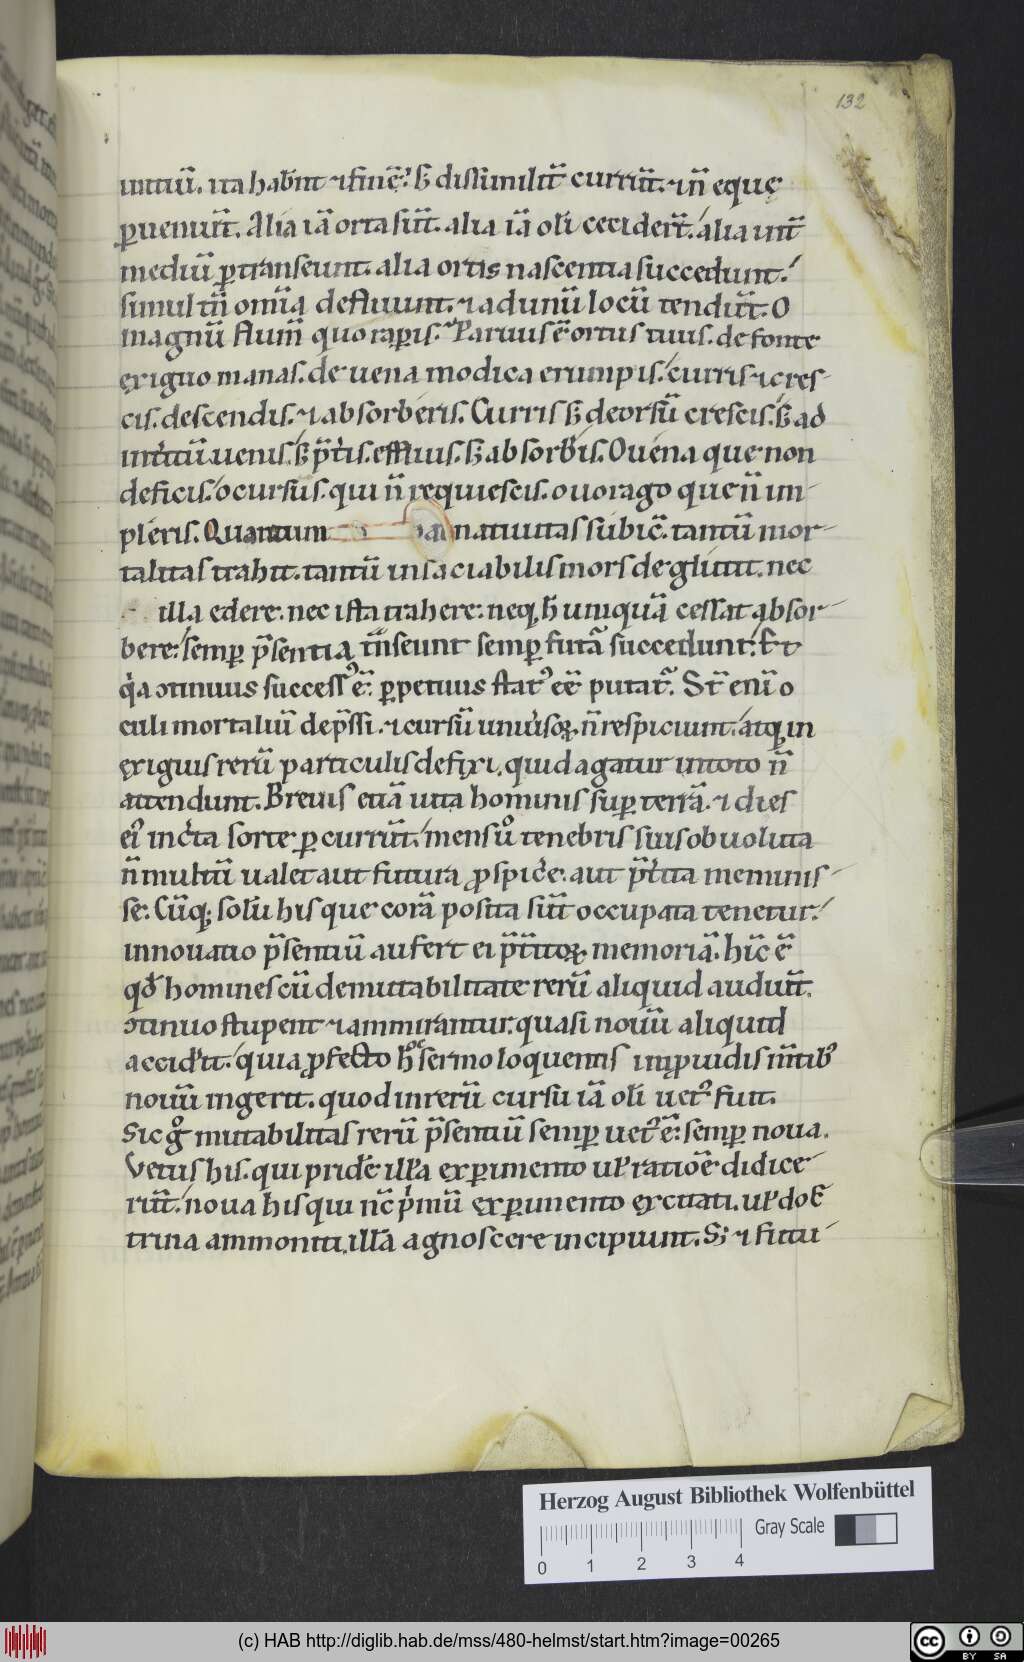 132
initiū. ita habēnt ⁊ finē? s; dissimilit̄ currūt̄. ⁊ n̄ eque
ꝑuenıūt̄. Alia iā orta sūt̄. alia iā olī ceciderūt̄. alia uñt̄
mediū ꝑtranseunt. alia ortis nascentia succedunt.
simul tn̄ om̄ia defluunt. ⁊ ad unū locū tendūt̄. O
magnū flum̄ quo raꝑis. Paruus ē ortus tuus. de fonte
exiguo manas. de uena modica erumpis. curris ⁊ cres-
cis. descendis. ⁊ absorberis. Curris s; deorsū crescis. s; ad
interitū uenis. s; p̄t̄is. effluis. s; absorberis. O uena que non
deficis. o cursus. qui n̄ requiescis. o uorago que n̄ im-
pleris. Quantum natiuitas subic̄. tantū mor-
talitas trahit. tantū insaciabilis mors deglutit. nec
illa edere. nec ista trahere. neq; h̄ umquā cessat absor-
bere. semꝑ p̄sentia tn̄seunt semꝑ futā succedunt. Et
q̇a ɔtinuus success' ē. ꝑpetuus stat' eē putat'. St̄ enī o
culi mortaliū dep̄ssi. ⁊ cursū uniu'soꝝ n̄ respiciunt. atq; in
exiguis rerū particulis defixi. quid agatur in toto n̄
attendunt. Breuis etiā uita hominis suꝑ terrā. ⁊ dies
ei' inc'ta sorte ꝑcurrūt̄. mens ů tenebris suis obuoluta
n̄ multū ualet aut futura ꝓspic'e. aut p̄t'ita meminis-
se. Cūq; solū his que corā posita sūt̄ occupata tenetur.
innouatio p̄sentiū aufert ei p̄t̄itoꝝ memoriā. hīc ē
qđ homines cū de mutabilitate rerū aliquid audiūt̄.
ɔtinuo stupent ⁊ ammirantur. quasi nouū aliquid
accid'it. quia ꝓfecto h̊ sermo loquentis imꝓuidis m̄tib'
nouū ingerit. quod in rerū cursu iā olī uet' fuit.
Sic g̊ mutabilitas rerū p̄sentiū semꝑ uet' ē. semꝑ noua.
Vetus his. qui pridē illa exꝑimento uł ratione didice-
rūt̄. noua his qui nc̄ p'mū exꝑimento excitati. uł doc̄
trina ammoniti. illā agnoscere incipiunt. S; ⁊ futu-
Herzog August Bibliothek Wolfenbüttel
Gray Scale
0 1 2 3 4
(c) HAB http://diglib.hab.de/mss/480-helmst/start.htm?image=00265
cc BY SA